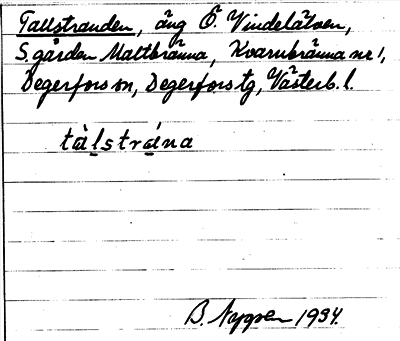 Tallstranden, äng Ö. Vindelälven,
S. gården Mattbränna, Kvarnbränna nr 1,
Degerfors sn, Degerfors tg, Västerb. l.
tàlstrána
B. 1934